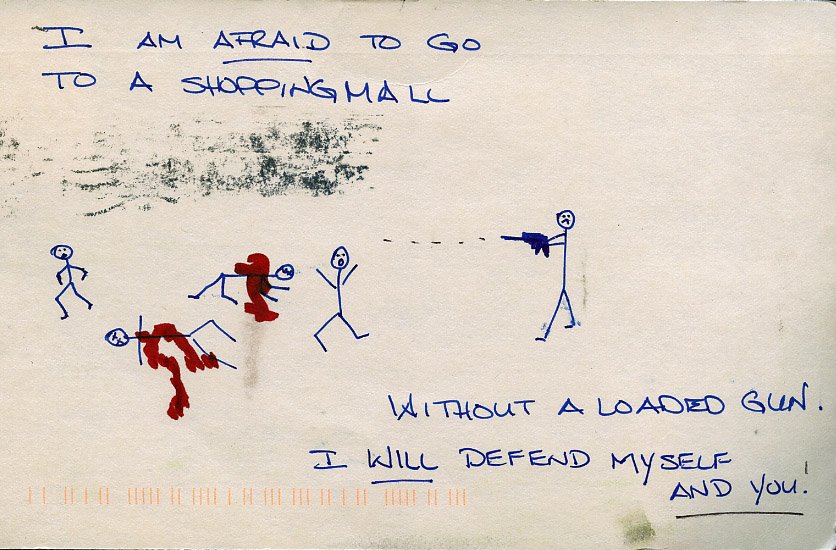 I AM AFRAID TO GO
TO A SHOPPING MALL
WITHOUT A LOADED GUN.
I WILL DEFEND MYSELF
AND YOU!